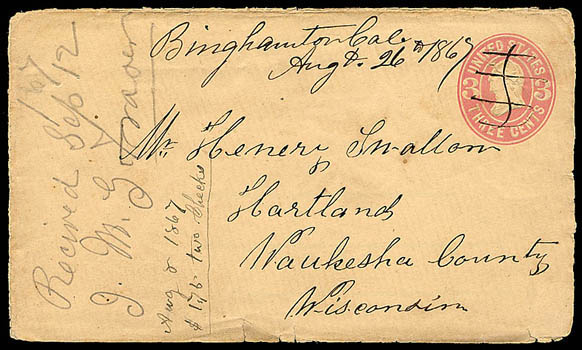 Binghamton Cal.
Augt. 26th 1867
UNITED STATES
3 3
THREE CENTS
Mr. Henery Swallow
Hartland
Waukesha County
Wisconsin
Recived Sep 12
1867
J. M.
Aug 8 1867
two Checks